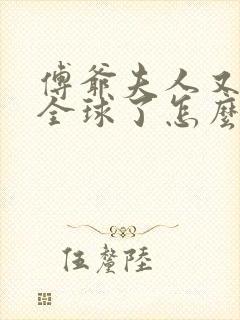 傅爺夫人又
全球了怎麼
伍釐陸